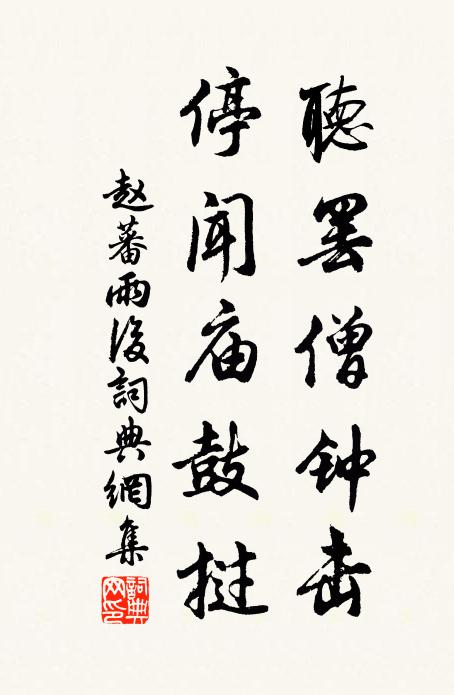 聽罢僧钟击
停闻庙鼓挝
赵蕃雨後詞典網集
詞典网印